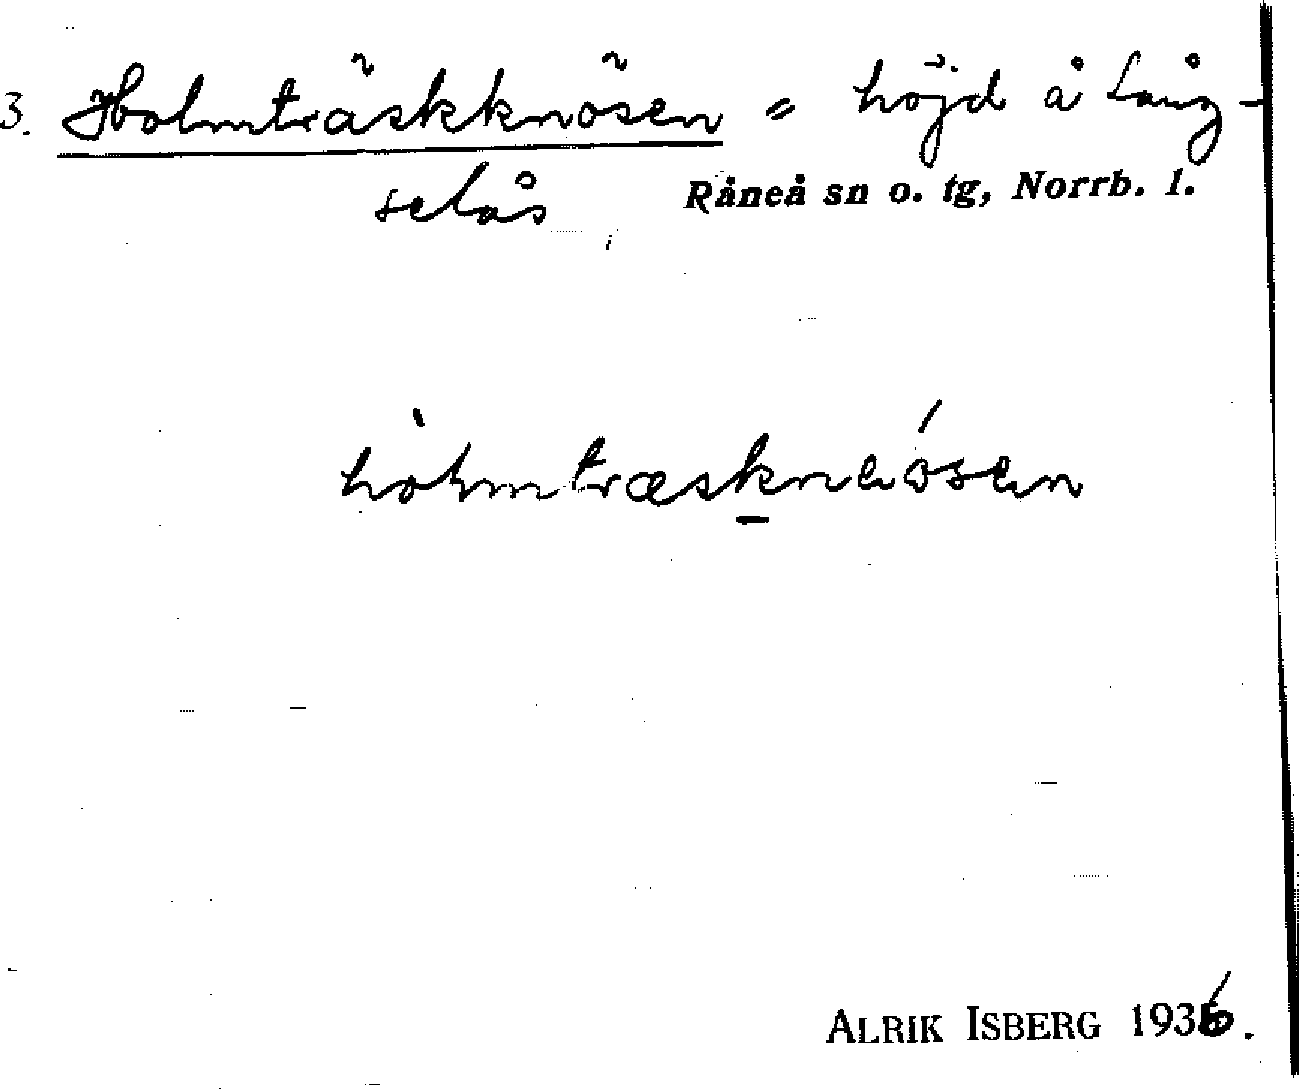 3. Holmträskknösen = höjd å Lång-
selås Råneå sn o. tg, Norrb. l.
hòlmtræskneósen
ALRIK ISBERG 1936.